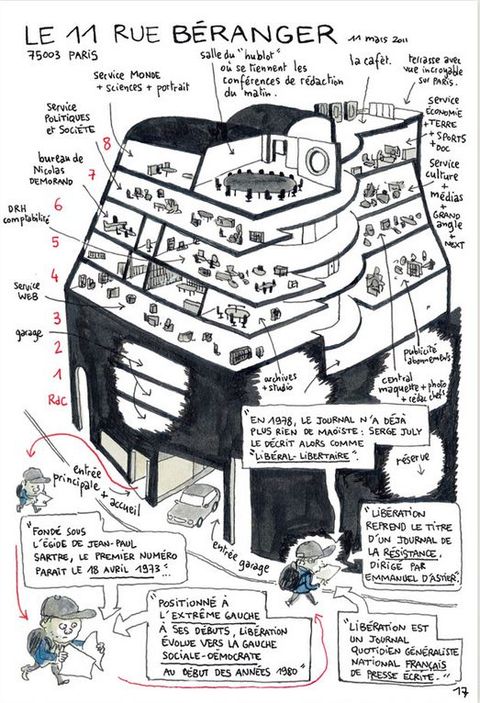 LE 11 RUE BÉRANGER
11 mars 2011
75003 PARIS
salle du "hublot"
où se tiennent les
conférences de rédaction
du matin.
la cafèt.
terrasse avec
vue incroyable
sur PARIS.
service MONDE
+ sciences + portrait
service
POLITIQUES
et SOCIÉTÉ
bureau de
Nicolas
DEMORAND
DRH
comptabilité
service
WEB
garage
8
7
6
5
4
3
2
1
RdC
service
ÉCONOMIE
+ TERRE
+ SPORTS
+ DOC
service
culture
+
médias
+
GRAND
angle
+
NEXT
publicité
abonnements
central
maquette + photo
+ rédac chefs
archives
+ studio
réserve
"EN 1978, LE JOURNAL N'A DÉJÀ
PLUS RIEN DE MAOÏSTE ; SERGE JULY
LE DÉCRIT ALORS COMME
"LIBÉRAL-LIBERTAIRE".
entrée
principale + accueil
entrée garage
"FONDÉ SOUS
L'ÉGIDE DE JEAN-PAUL
SARTRE, LE PREMIER NUMÉRO
PARAÎT LE 18 AVRIL 1973".
"LIBÉRATION
REPREND LE TITRE
D'UN JOURNAL DE
LA RÉSISTANCE,
DIRIGÉ PAR
EMMANUEL D'ASTIER".
"POSITIONNÉ À
L'EXTRÊME GAUCHE
À SES DÉBUTS, LIBÉRATION
ÉVOLUE VERS LA GAUCHE
SOCIALE-DÉMOCRATE
AU DÉBUT DES ANNÉES 1980"
"LIBÉRATION EST
UN JOURNAL
QUOTIDIEN GÉNÉRALISTE
NATIONAL FRANÇAIS
DE PRESSE ÉCRITE."
17